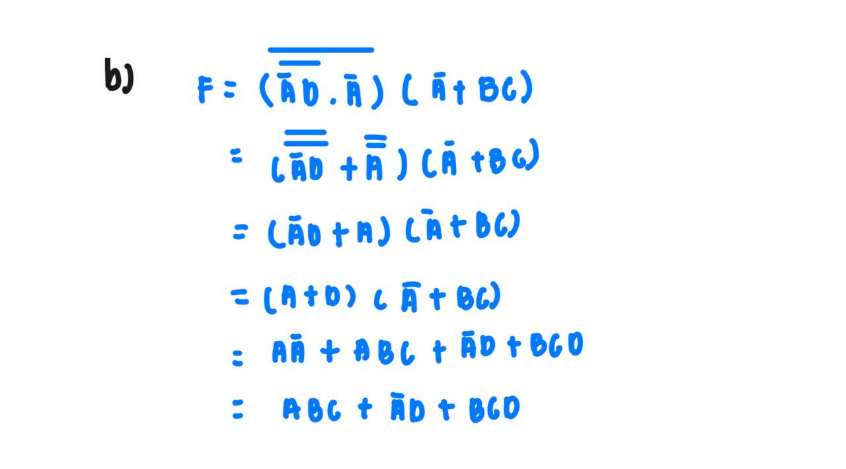 b) F = (\overline{\overline{\bar{A}D} . \bar{A}}) (\bar{A} + BC)
= (\overline{\overline{\bar{A}D}} + \overline{\overline{A}}) (\bar{A} + BC)
= (\bar{A}D + A) (\bar{A} + BC)
= (A + D) (\bar{A} + BC)
= A\bar{A} + ABC + \bar{A}D + BCD
= ABC + \bar{A}D + BCD